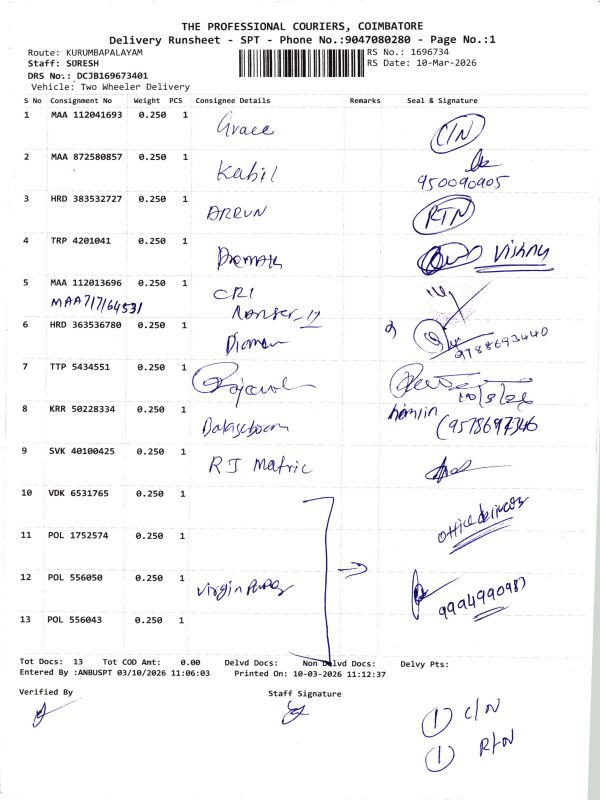 THE PROFESSIONAL COURIERS, COIMBATORE
Delivery Runsheet - SPT - Phone No.:9047080280 - Page No.:1
Route: KURUMBAPALAYAM RS No.: 1696734
Staff: SURESH RS Date: 10-Mar-2026
DRS No.: DCJB169673401
Vehicle: Two Wheeler Delivery
S No Consignment No Weight PCS Consignee Details Remarks Seal & Signature
1 MAA 112041693 0.250 1 Grace C/N
2 MAA 872580857 0.250 1 Kabil
950090905
3 HRD 383532727 0.250 1 ARRUN RTN
4 TRP 4201041 0.250 1 Vishnu
5 MAA 112013696 0.250 1 CRI
MAA717164531
6 HRD 363536780 0.250 1
9788693440
7 TTP 5434551 0.250 1
10/3/26
8 KRR 50228334 0.250 1
(9578697346
9 SVK 40100425 0.250 1 RJ Matric
10 VDK 6531765 0.250 1
office delivery
11 POL 1752574 0.250 1
12 POL 556050 0.250 1 virgin
9994990983
13 POL 556043 0.250 1
Tot Docs: 13 Tot COD Amt: 0.00 Delvd Docs: Non Delvd Docs: Delvy Pts:
Entered By :ANBUSPT 03/10/2026 11:06:03 Printed On: 10-03-2026 11:12:37
Verified By Staff Signature
1 C/N
1 RTN